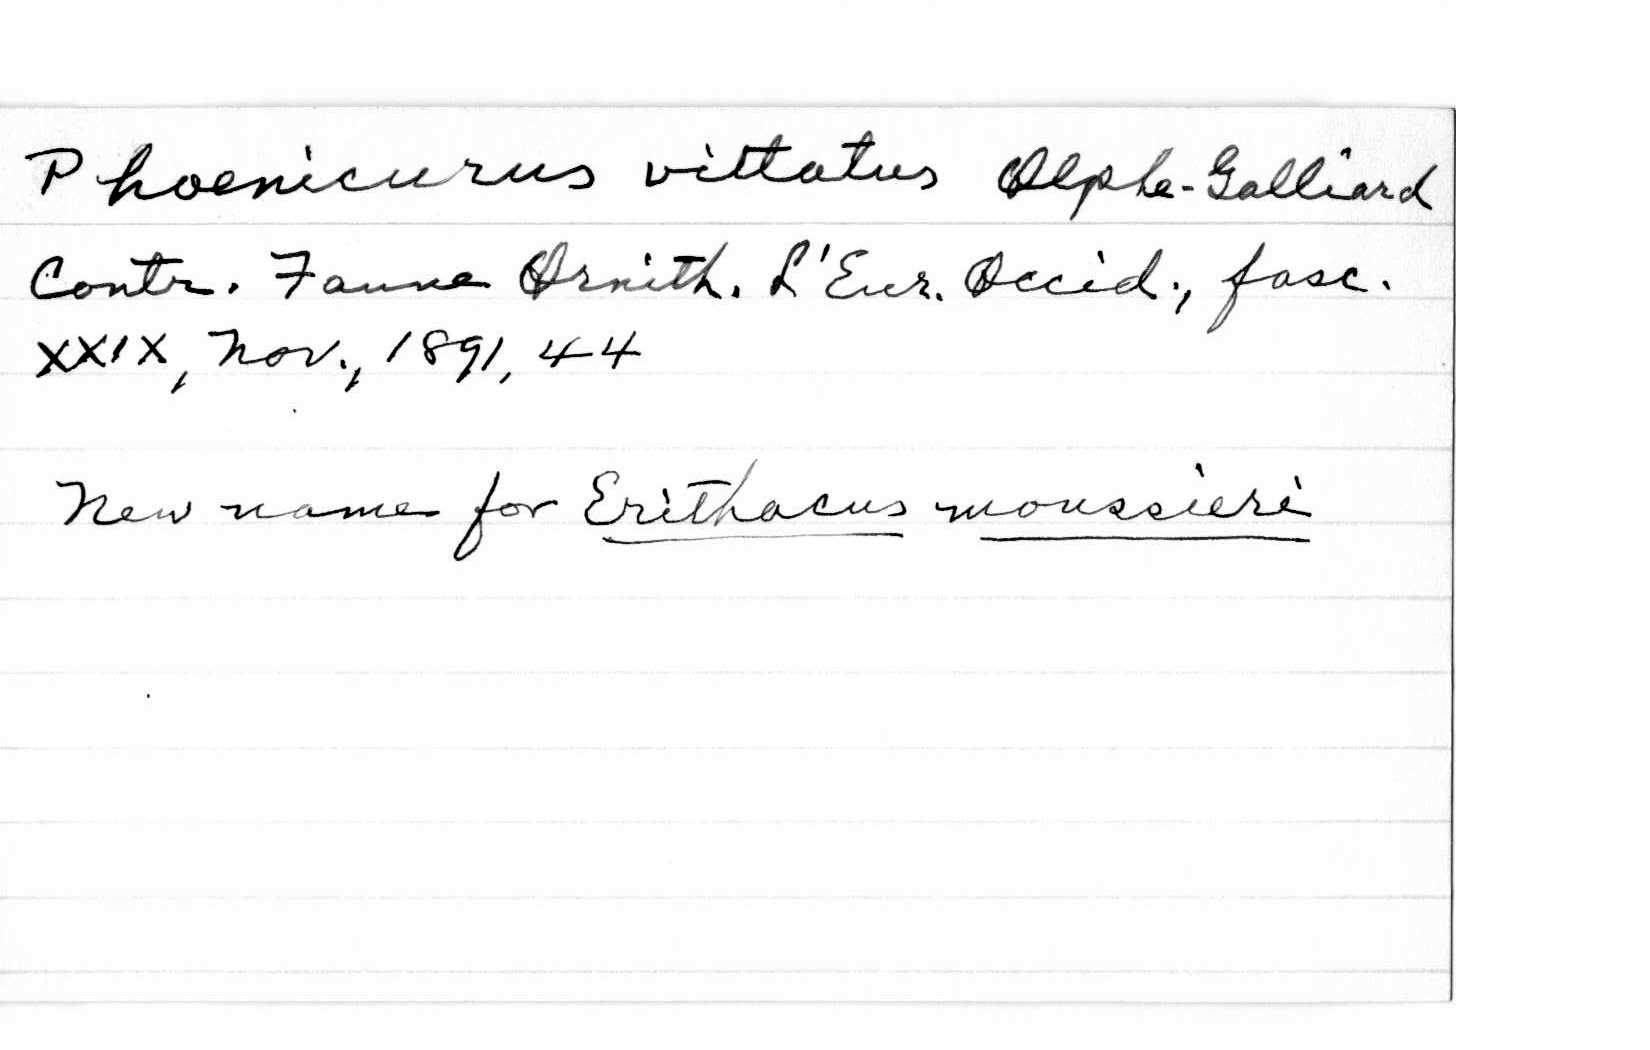 Phoenicurus vittatus Olphe-Galliard
Contr. Faune Ornith. L'Eur. Occid., fasc.
XXIX, Nov., 1891, 44
New name for Erithacus moussieri